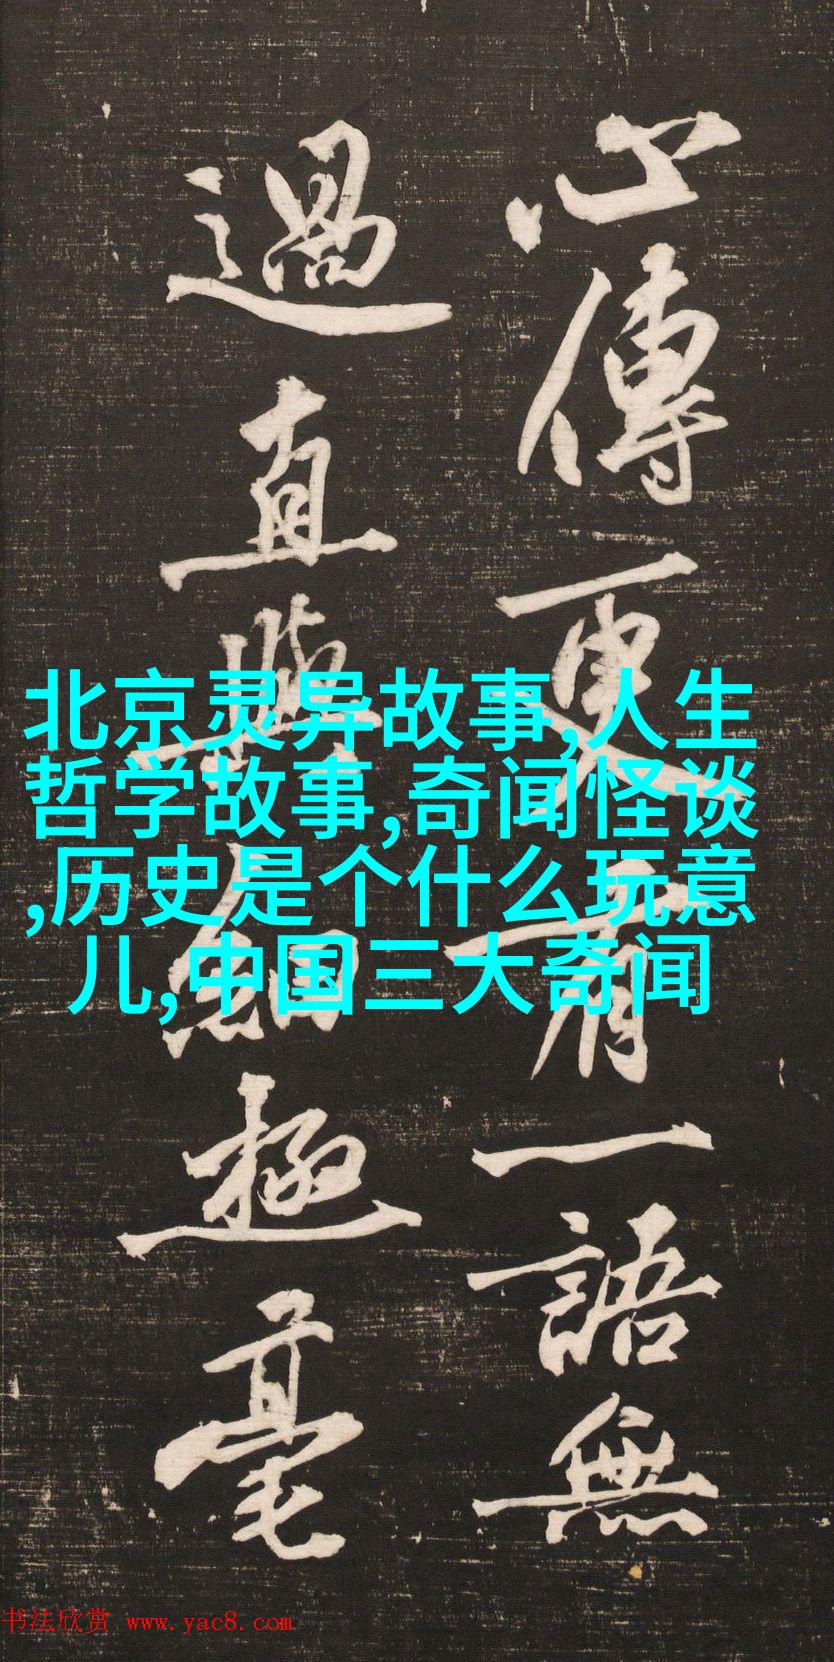 心傳更有一語無
過直與細極毫
北京灵异故事,人生
哲学故事,奇闻怪谈
,历史是个什么玩意
儿,中国三大奇闻
书法欣赏 www.yac8.com